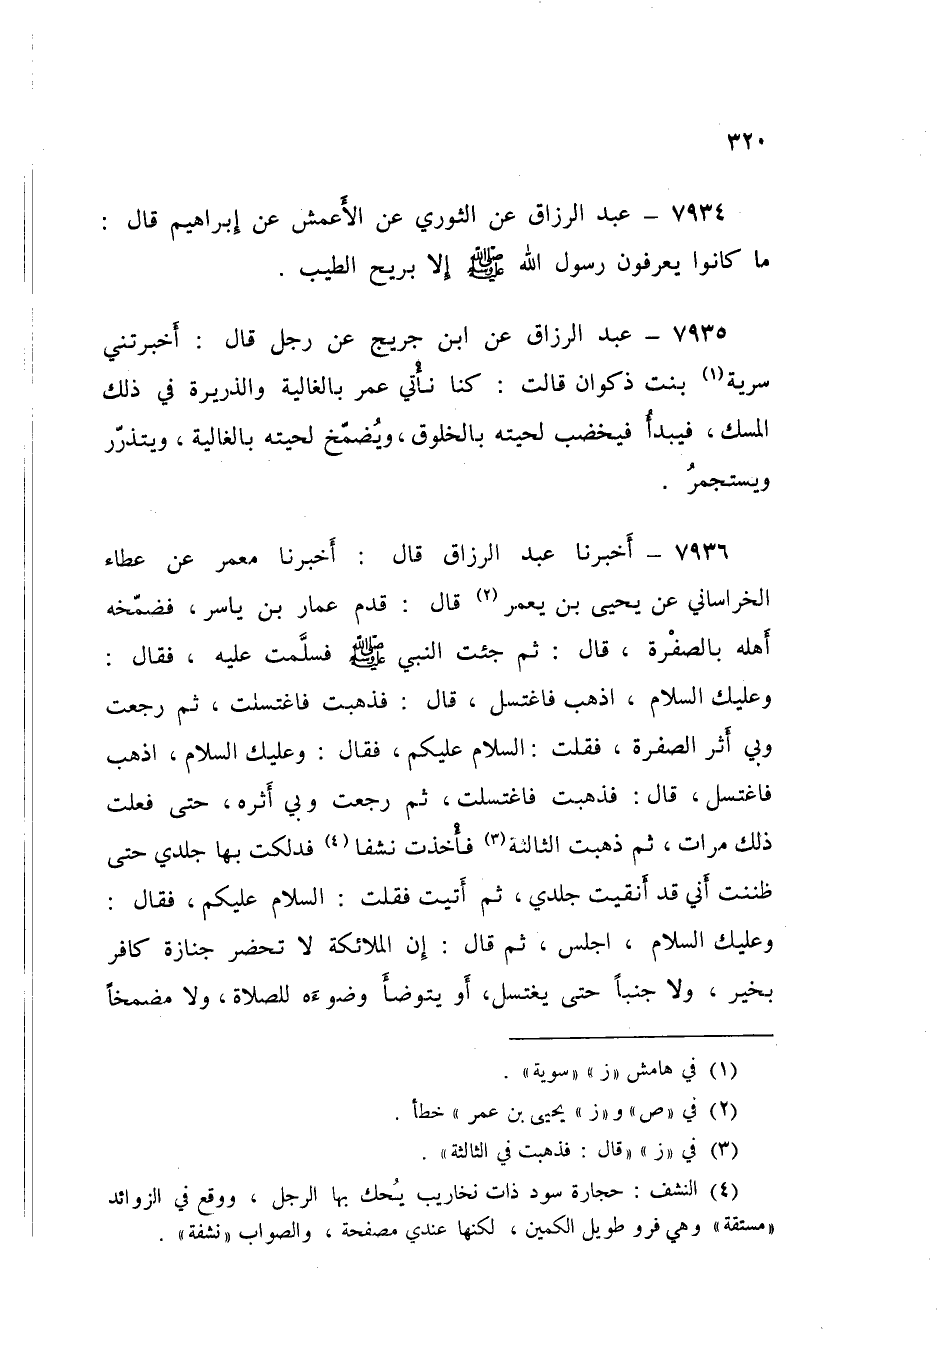 ٣٢٠
٧٩٣٤ – عبد الرزاق عن الثوري عن الأَعمش عن إبراهيم قال :
ما كانوا يعرفون رسول الله ﷺ إلا بريح الطيب .
٧٩٣٥ – عبد الرزاق عن ابن جريج عن رجل قال : أَخبرتني
سرية(١) بنت ذكوان قالت : كنا نأْتي عمر بالغالية والذريرة في ذلك
المسك ، فيبدأُ فيخضب لحيته بالخلوق ، ويُضمّخ لحيته بالغالية ، ويتذرّر
ويستجمرُ .
٧٩٣٦ – أَخبرنا عبد الرزاق قال : أَخبرنا معمر عن عطاء
الخراساني عن يحيى بن يعمر(٢) قال : قدم عمار بن ياسر ، فضمّخه
أَهله بالصفْرة ، قال : ثم جئت النبي ﷺ فسلَّمت عليه ، فقال :
وعليك السلام ، اذهب فاغتسل ، قال : فذهبت فاغتسلت ، ثم رجعت
وبي أَثر الصفرة ، فقلت : السلام عليكم ، فقال : وعليك السلام ، اذهب
فاغتسل ، قال : فذهبت فاغتسلت ، ثم رجعت وبي أَثره ، حتى فعلت
ذلك مرات ، ثم ذهبت الثالثة(٣) فأُخذت نشفا(٤) فدلكت بها جلدي حتى
ظننت أَني قد أَنقيت جلدي ، ثم أَتيت فقلت : السلام عليكم ، فقال :
وعليك السلام ، اجلس ، ثم قال : إن الملائكة لا تحضر جنازة كافر
بخير ، ولا جنباً حتى يغتسل ، أَو يتوضأَ وضوءه للصلاة ، ولا مضمخاً
(١) في هامش «ز» «سوية» .
(٢) في «ص» و«ز» يحيى بن عمر » خطأ .
(٣) في «ز» «قال : فذهبت في الثالثة» .
(٤) النشف : حجارة سود ذات نخاريب يُحك بها الرجل ، ووقع في الزوائد
«مستقة» وهي فرو طويل الكمين ، لكنها عندي مصفحة ، والصواب «نشفة» .